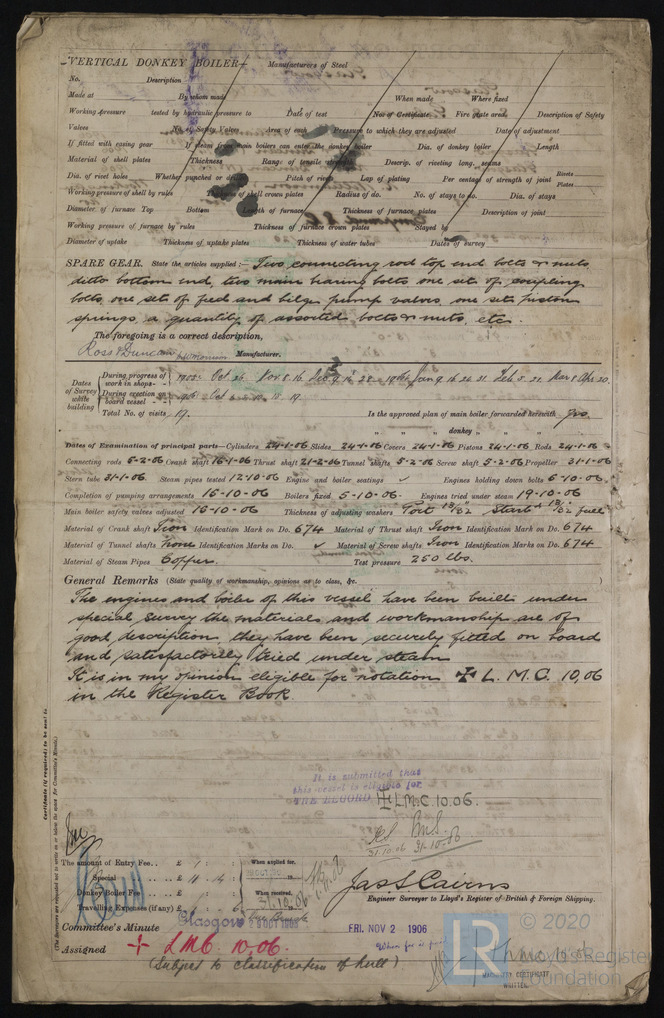 VERTICAL DONKEY BOILER— Manufacturers of Steel
No. Description
Made at By whom made When made Where fixed
Working pressure tested by hydraulic pressure to Date of test No. of Certificate Fire grate area Description of Safety
Valves No. of Safety Valves Area of each Pressure to which they are adjusted Date of adjustment
If fitted with easing gear If steam from main boilers can enter the donkey boiler Dia. of donkey boiler Length
Material of shell plates Thickness Range of tensile strength Descrip. of riveting long. seams
Dia. of rivet holes Whether punched or drilled Pitch of rivets Lap of plating Per centage of strength of joint Rivets Plates
Working pressure of shell by rules Thickness of shell crown plates Radius of do. No. of stays to do. Dia. of stays
Diameter of furnace Top Bottom Length of furnace Thickness of furnace plates Description of joint
Working pressure of furnace by rules Thickness of furnace crown plates Stayed by
Diameter of uptake Thickness of uptake plates Thickness of water tubes Dates of survey
SPARE GEAR. State the articles supplied:— Two connecting rod top end bolts & nuts
ditto bottom end, two main bearing bolts one set of coupling
bolts, one set of feed and bilge pump valves, one set piston
springs, a quantity of assorted bolts & nuts, etc.
The foregoing is a correct description,
Ross & Duncan Manufacturer.
Dates of Survey while building
During progress of work in shops— 1905: Oct 26 Nov 8. 16 Dec 9. 28 1906 Jan 9. 16 24 31 Feb 5. 21. Mar 8 Apr 20.
During erection on board vessel— 1906: Oct 17
Total No. of visits 17. Is the approved plan of main boiler forwarded herewith Yes
" " " donkey " " "
Dates of Examination of principal parts—Cylinders 24-1-06 Slides 24-1-06 Covers 24-1-06 Pistons 24-1-06 Rods 24-1-06
Connecting rods 5-2-06 Crank shaft 16-1-06 Thrust shaft 21-2-06 Tunnel shafts 5-2-06 Screw shaft 5-2-06 Propeller 31-1-06
Stern tube 31-1-06 Steam pipes tested 12-10-06 Engine and boiler seatings ✓ Engines holding down bolts 5-10-06.
Completion of pumping arrangements 15-10-06 Boilers fixed 5-10-06. Engines tried under steam 19-10-06
Main boiler safety valves adjusted 16-10-06 Thickness of adjusting washers Port 13/32 Starb'd 13/32 full
Material of Crank shaft Iron Identification Mark on Do. 674 Material of Thrust shaft Iron Identification Mark on Do. 674
Material of Tunnel shafts none Identification Marks on Do. ✓ Material of Screw shafts Iron Identification Marks on Do. 674
Material of Steam Pipes Copper. Test pressure 250 lbs.
General Remarks (State quality of workmanship, opinions as to class, &c.
The engines and boiler of this vessel have been built under
special survey the materials and workmanship are of
good description, they have been securely fitted on board
and satisfactorily tried under steam
It is in my opinion eligible for notation ✠ L. M. C. 10,06
in the Register Book.
Certificate (if required) to be sent to
(The Surveyors are requested not to write on or below the space for Committee's Minute.)
It is submitted that
this vessel is eligible for
THE RECORD ✠ LMC. 10.06.
31.10.06 31-10-06
The amount of Entry Fee.. £ When applied for,
Special £
Donkey Boiler Fee £ When received,
Travelling Expenses (if any) £ 31.10.06
Jas S Cairns
Engineer Surveyor to Lloyd's Register of British & Foreign Shipping.
Committee's Minute Glasgow FRI. NOV 2 1906
Assigned + LMC 10,06.
(Subject to classification of hull)
MACHINERY CERTIFICATE
WRITTEN
© 2020
LR Lloyd's Register
Foundation